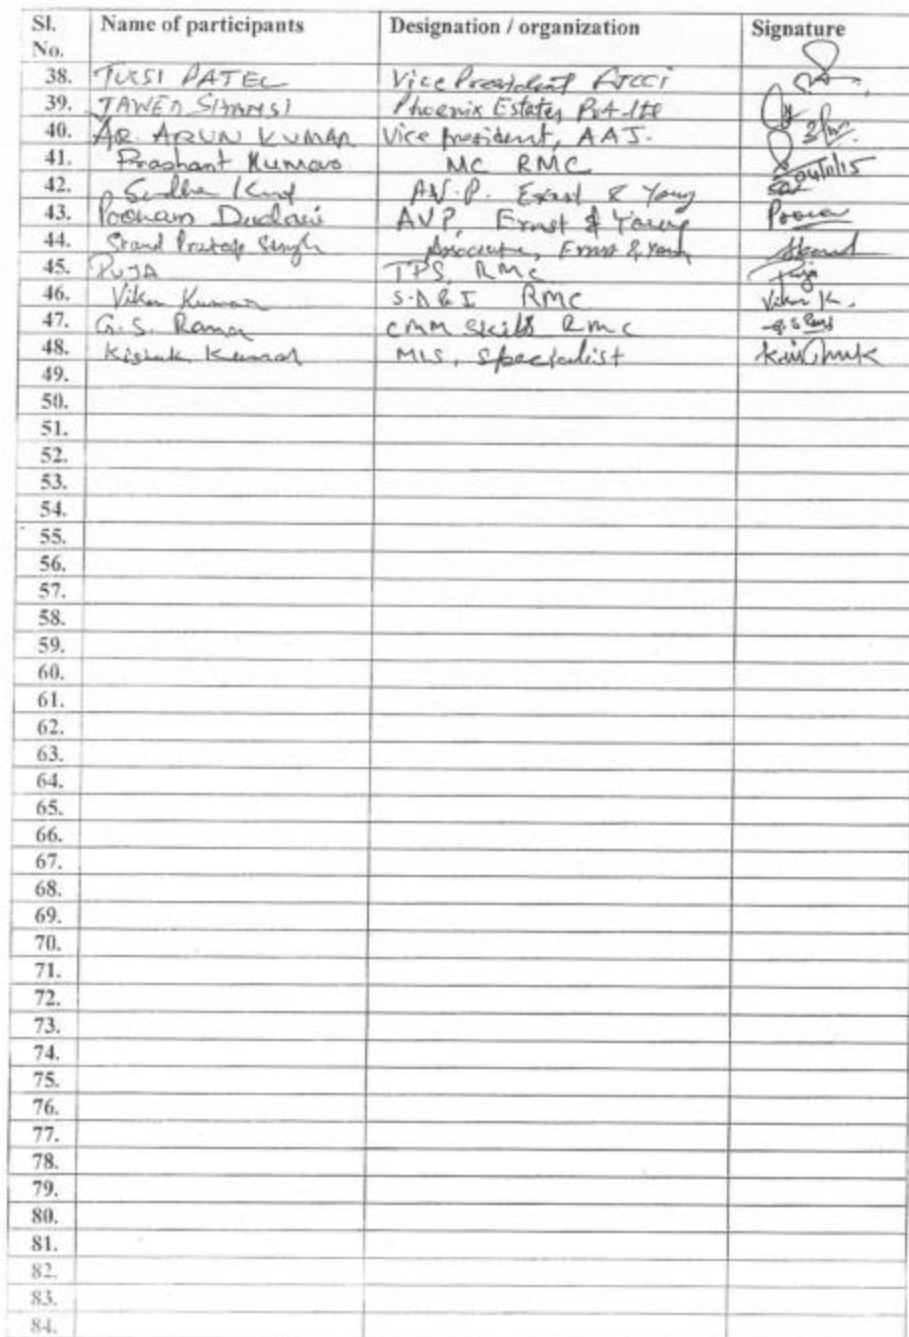 Sl. No. Name of participants Designation / organization Signature
38. TULSI PATEL Vice President FJCCI
39. JAWED SHAMSI Phoenix Estates Pvt. Ltd
40. AR. ARUN KUMAR Vice president, AAJ.
41. Prashant Kumar MC RMC 04/11/15
42. Sudha AV.P. Ernst & Young
43. Poonam AVP, Ernst & Young Poonam
44. Skand Pratap Singh Associate, Ernst & Young Skand
45. PUJA TPS, RMC Puja
46. Vikas Kumar S.D & I RMC Vikas K.
47. G.S. Rana CMM Skills RMC G S Rana
48. Kishuk Kumar MIS, Specialist
49.
50.
51.
52.
53.
54.
55.
56.
57.
58.
59.
60.
61.
62.
63.
64.
65.
66.
67.
68.
69.
70.
71.
72.
73.
74.
75.
76.
77.
78.
79.
80.
81.
82.
83.
84.